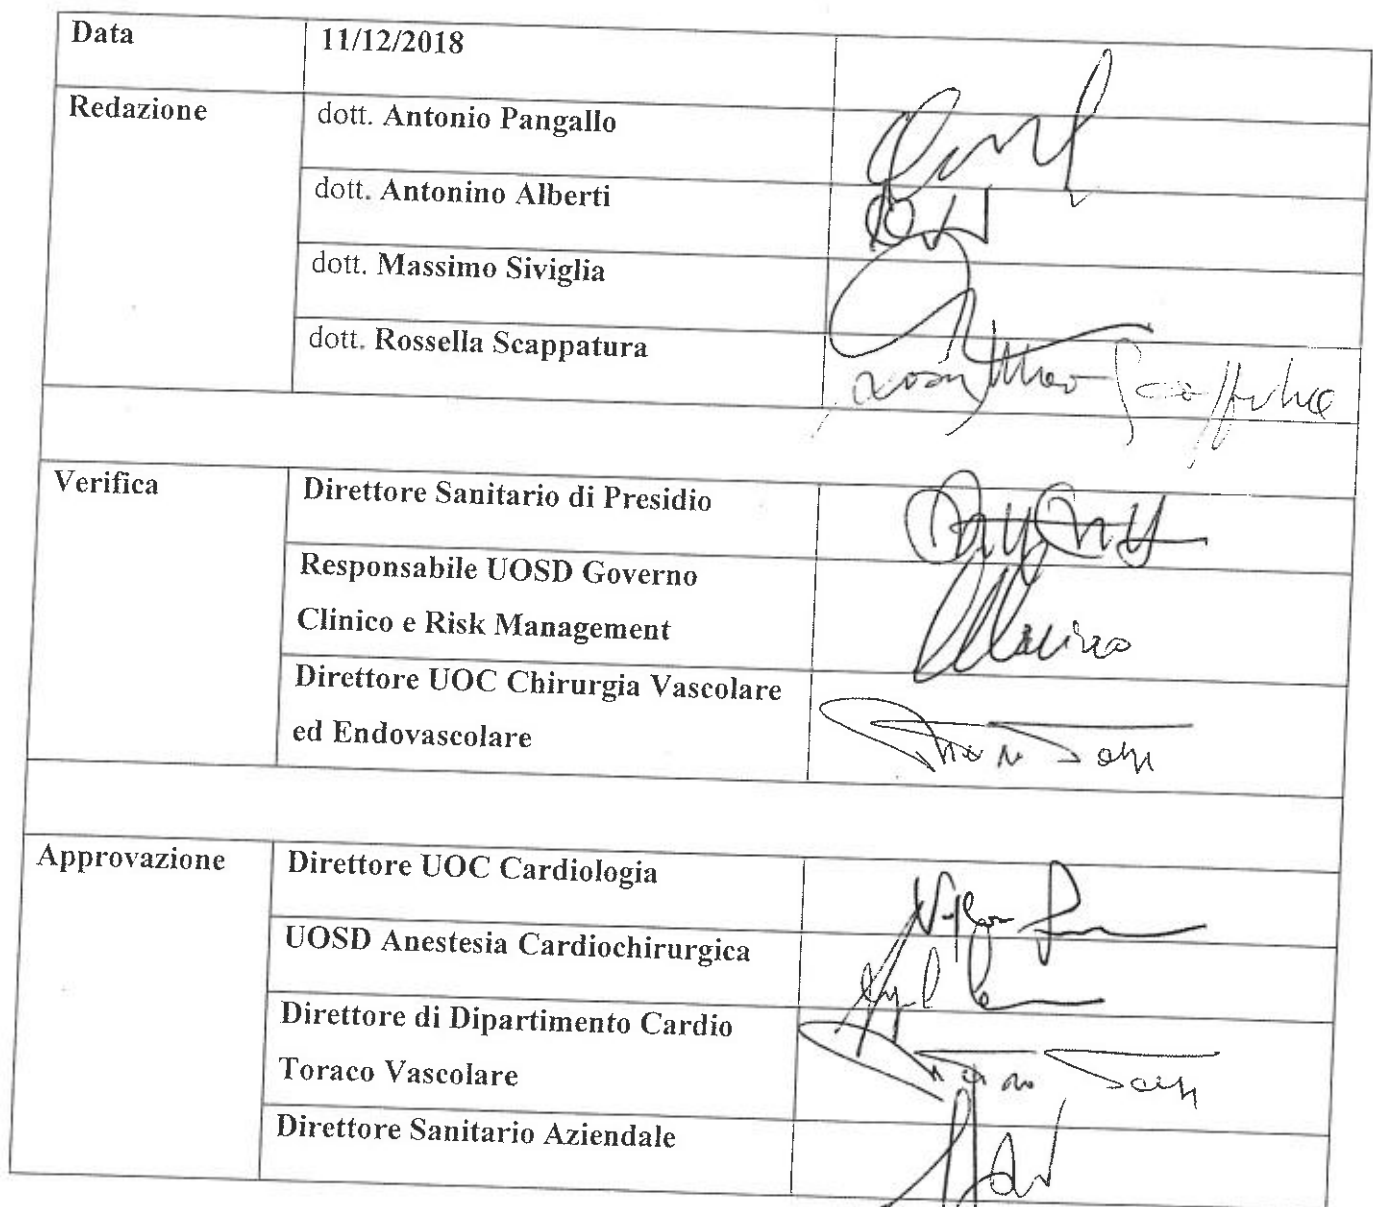 Data 11/12/2018
Redazione dott. Antonio Pangallo
dott. Antonino Alberti
dott. Massimo Siviglia
dott. Rossella Scappatura
Verifica Direttore Sanitario di Presidio
Responsabile UOSD Governo
Clinico e Risk Management
Direttore UOC Chirurgia Vascolare
ed Endovascolare
Approvazione Direttore UOC Cardiologia
UOSD Anestesia Cardiochirurgica
Direttore di Dipartimento Cardio
Toraco Vascolare
Direttore Sanitario Aziendale